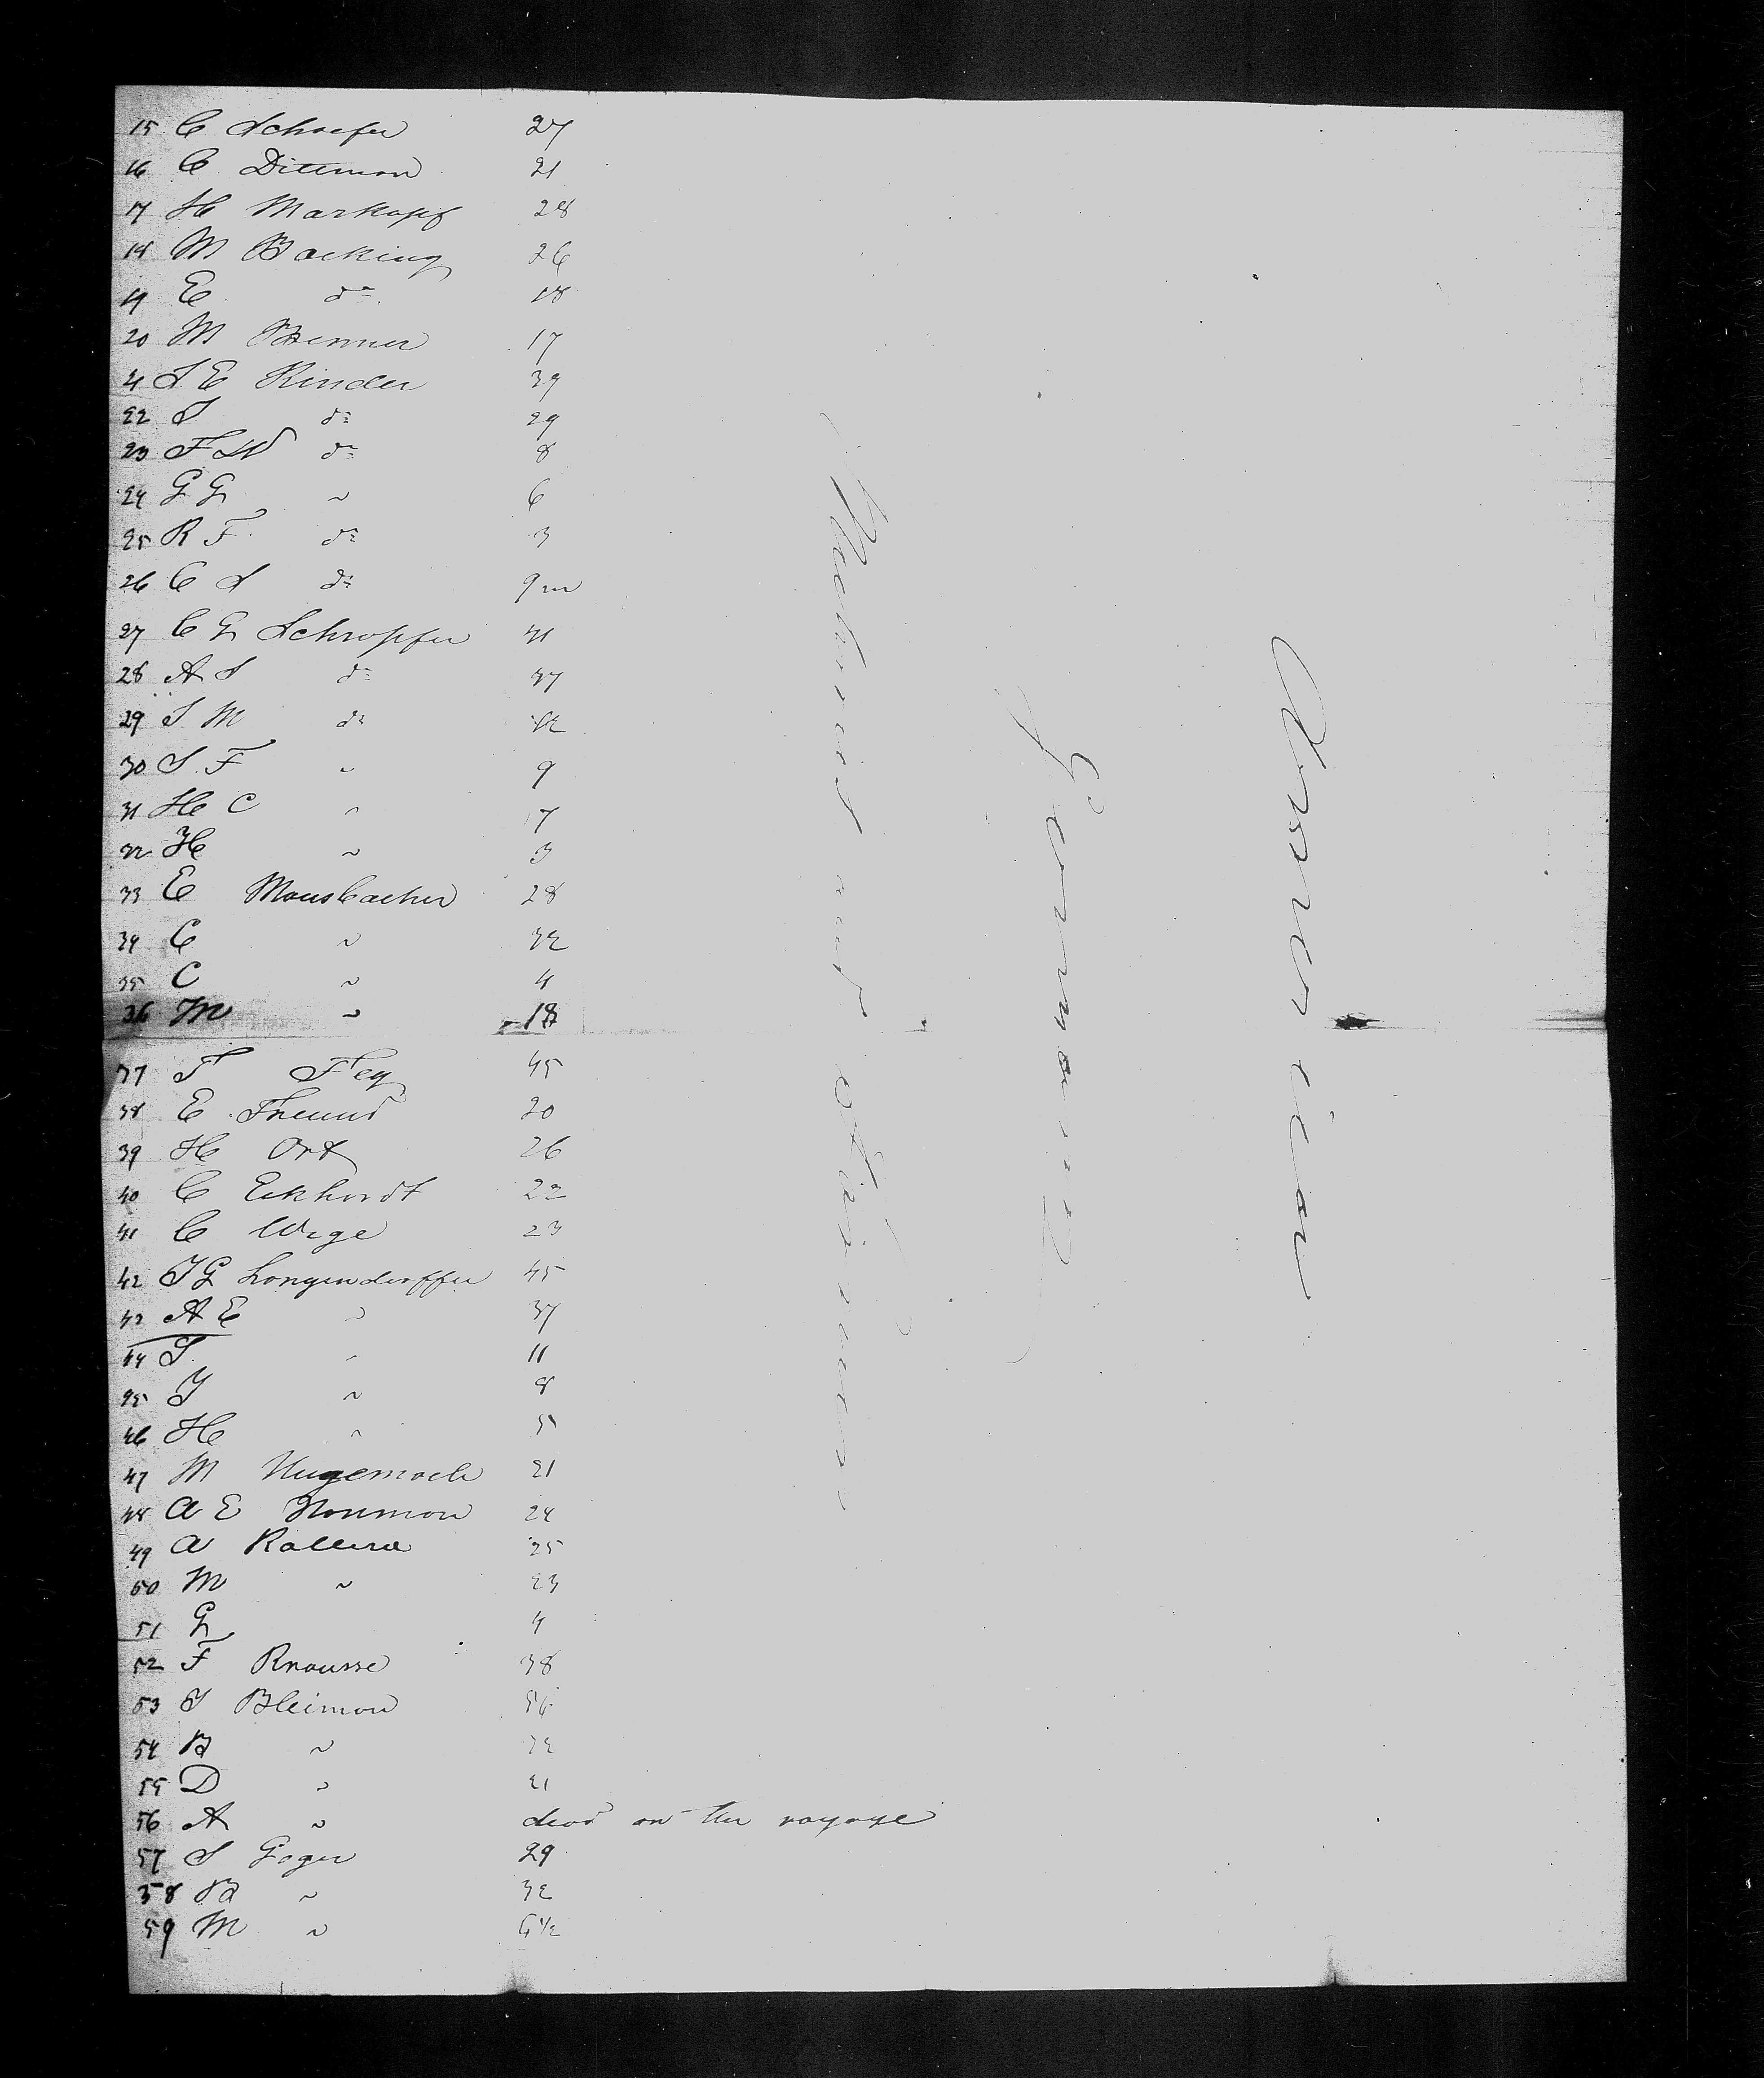 15 C Schaefer 27
16 C Dittman 21
17 H Markopf 28
18 M Backing 26
19 E do 18
20 M Benner 17
21 S E Kinder 39
22 S do 29
23 F W do 8
24 G G " 6
25 R F do 3
26 C S do 9 m
27 C G Schropfer 41
28 A S do 37
29 S M do 12
30 S F " 9
31 H C " 7
32 H " 3
33 E Mausbacher 28
34 C " 32
35 C " 4
36 M " 18
37 F Fey 45
38 E Freund 20
39 H Ort 26
40 C Eckhardt 22
41 C Wege 23
42 J G Langendorffer 45
43 A E " 37
44 S " 11
45 J " 8
46 H " 5
47 M 21
48 A E 24
49 A 25
50 M " 23
51 G 4
52 F Krausse 38
53 J Bleiman 56
54 B " 
55 D " 21
56 A " dead on the voyage
57 S Geger 29
58 B " 32
59 M " 6 1/2
Mechanics and
Germany
American